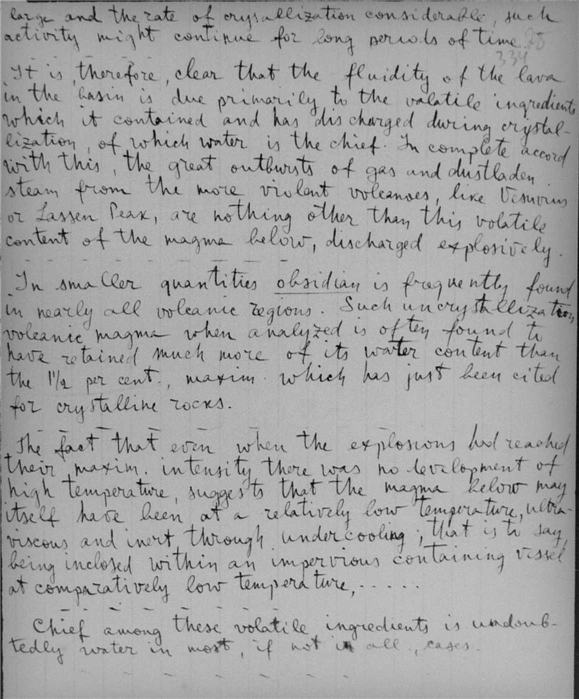 large and the rate of crysallization considerable, such
activity might continue for long periods of time.
334
It is therefore, clear that the fluidity of the lava
in the basin is due primarily to the volatile ingredients
which it contained and has discharged during crystal-
lization, of which water is the chief. In complete accord
with this, the great outbursts of gas and dustladen
steam from the more violent volcanoes, like Vesuvius
or Lassen Peak, are nothing other than this volatile
content of the magma below, discharged explosively.
In smaller quantities obsidian is frequently found
in nearly all volcanic regions. Such uncrystallization
volcanic magma when analyzed is often found to
have retained much more of its water content than
the 1½ per cent., maxim. which has just been cited
for crystalline rocks.
The fact that even when the explosions had reached
their maxim. intensity there was no development of
high temperature, suggests that the magma below may
itself have been at a relatively low temperature, ultra-
viscous and inert, through undercooling; that is to say,
being inclosed within an impervious containing vessel
at comparatively low temperature, ......
Chief among these volatile ingredients is undoub-
tedly water in most, if not in all, cases.